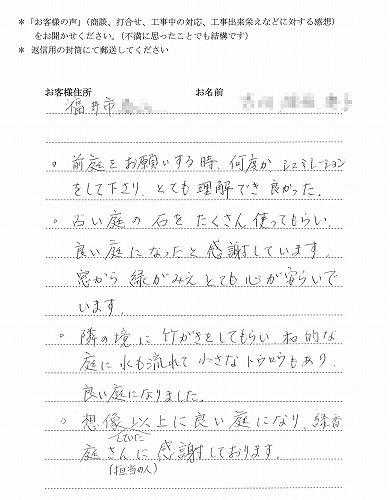 *「お客様の声」(商談、打合せ、工事中の対応、工事出来栄えなどに対する感想)
をお聞かせください。(不満に思ったことでも結構です)
* 返信用の封筒にて郵送してください
お客様住所 お名前
福井市
。前庭をお願いする時、何度か、シュミレーション
をして下さり、とても理解でき良かった。
。古い庭の石をたくさん使ってもらい、
良い庭になったと感謝しています。
窓から緑がみえとても心が安らいで
います。
。隣の境に竹がきをしてもらい、和的な
庭に水も流れて小さなトウロウもあり、
良い庭になりました。
。想像以上に良い庭になり、緑香
していた
庭さんに感謝しております。
(担当の人)